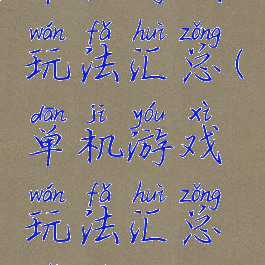 wán fǎ huì zǒng
玩法汇总(
dān jī yóu xì
单机游戏
wán fǎ huì zǒng
玩法汇总